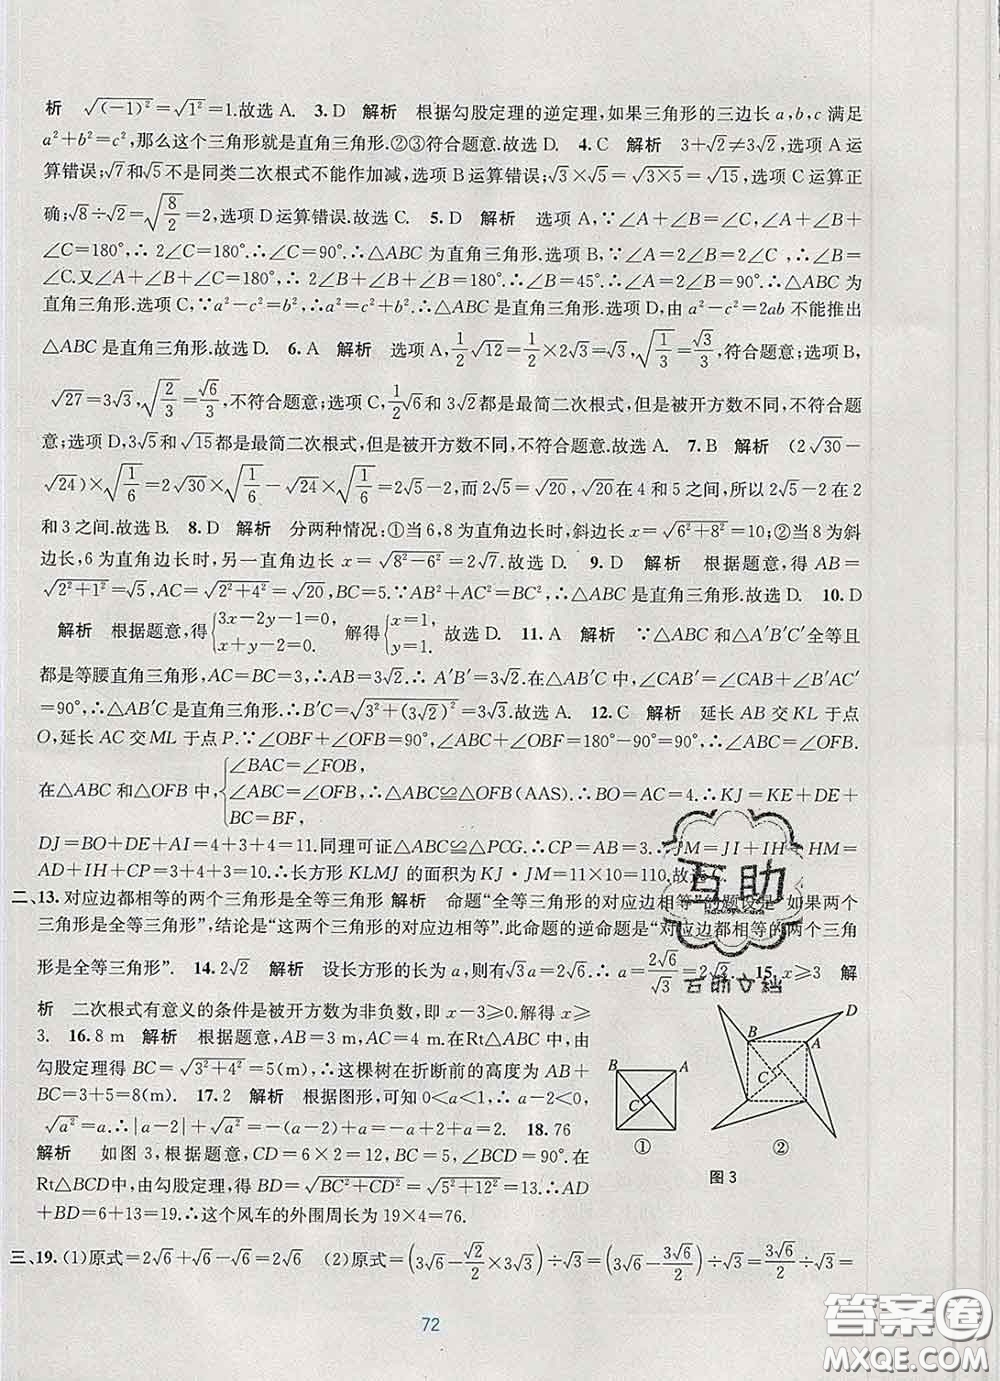 析 √(-1)²=√1²=1.故选 A. 3. D 解析 根据勾股定理的逆定理,如果三角形的三边长 a,b,c 满足
a²+b²=c²,那么这个三角形就是直角三角形.②③符合题意.故选 D. 4. C 解析 3+√2≠3√2,选项 A 运
算错误;√7和√5不是同类二次根式不能作加减,选项 B 运算错误;√3×√5=√(3×5)=√15,选项 C 运算正
确;√8÷√2=√(8/2)=2,选项 D 运算错误.故选 C. 5. D 解析 选项 A,∵∠A+∠B=∠C,∠A+∠B+
∠C=180°,∴ 2∠C=180°.∴∠C=90°.∴△ABC 为直角三角形.选项 B,∵∠A=2∠B=2∠C ,∴∠B=
∠C.又∠A+∠B+∠C=180°,∴ 2∠B+∠B+∠B=180°.∴∠B=45°.∴∠A=2∠B=90°.∴△ABC 为
直角三角形.选项 C,∵a²-c²=b²,∴a²=c²+b².∴△ABC 是直角三角形.选项 D,由 a²-c²=2ab 不能推出
△ABC 是直角三角形.故选 D. 6. A 解析 选项 A,1/2√12=1/2×2√3=√3,√(1/3)=√3/3,符合题意;选项 B,
√27=3√3,√(2/3)=√6/3,不符合题意;选项 C,1/2√6和 3√2都是最简二次根式,但是被开方数不同,不符合题
意;选项 D,3√5和√15都是最简二次根式,但是被开方数不同,不符合题意.故选 A. 7. B 解析 (2√30-
√24)×√(1/6)=2√30×√(1/6)-√24×√(1/6)=2√5-2,而 2√5=√20,√20在 4 和 5 之间,所以 2√5-2 在 2
和 3 之间.故选 B. 8. D 解析 分两种情况:①当 6,8 为直角边长时,斜边长 x=√(6²+8²)=10;②当 8 为斜
边长,6 为直角边长时,另一直角边长 x=√(8²-6²)=2√7.故选 D. 9. D 解析 根据题意,得 AB=
√(2²+1²)=√5,AC=√(2²+4²)=√20,BC=5.∵AB²+AC²=BC²,∴△ABC 是直角三角形.故选 D. 10. D
解析 根据题意,得{3x-2y-1=0, x+y-2=0. 解得{x=1, y=1. 故选 D. 11. A 解析 ∵△ABC 和△A′B′C′全等且
都是等腰直角三角形,AC=BC=3,∴AB=3√2.∴ A′B′=3√2.在△AB′C 中,∠CAB′=∠CAB+∠B′AC′
=90°,∴△AB′C 是直角三角形.∴B′C=√(3²+(3√2)²)=3√3.故选 A. 12. C 解析 延长 AB 交 KL 于点
O,延长 AC 交 ML 于点 P.∵∠OBF+∠OFB=90°,∠OBF+∠ABC=180°-90°=90°,∴∠ABC=∠OFB.
在△ABC 和△OFB 中,{∠BAC=∠FOB, ∠ABC=∠OFB, BC=BF, ∴△ABC≌△OFB(AAS).∴BO=AC=4.∴ KJ=KE+DE+
DJ=BO+DE+AI=4+3+4=11.同理可证△ABC≌△PCG.∴CP=AB=3.∴JM=JI+IH+HM=
AD+IH+CP=3+4+3=10.∴长方形 KLMJ 的面积为 KJ·JM=11×10=110.故选
二、13. 对应边都相等的两个三角形是全等三角形 解析 命题“全等三角形的对应边相等”的题设是“如果两个
三角形是全等三角形”,结论是“这两个三角形的对应边相等”.此命题的逆命题是“对应边都相等的两个三角
形是全等三角形”. 14. 2√2 解析 设长方形的长为 a,则有√3a=2√6.∴ a=2√6/√3=2√2. 15. x≥3 解
析 二次根式有意义的条件是被开方数为非负数,即 x-3≥0.解得 x≥
3. 16. 8 m 解析 根据题意,AB=3 m,AC=4 m.在Rt△ABC 中,由
勾股定理得 BC=√(3²+4²)=5(m),∴这棵树在折断前的高度为 AB+
BC=3+5=8(m). 17. 2 解析 根据图形,可知 0<a<1.∴a-2<0,
√a²=a.∴|a-2|+√a²=-(a-2)+a=-a+2+a=2 18. 76
解析 如图 3,根据题意,CD=6×2=12,BC=5,∠BCD=90°.在
Rt△BCD 中,由勾股定理,得 BD=√(BC²+CD²)=√(5²+12²)=13.∴AD
+BD=6+13=19.∴这个风车的外围周长为 19×4=76.
B A C ①
B A C D ②
图 3
三、19. (1)原式=2√6+√6-√6=2√6 (2)原式=(3√6-√2/2×3√3)÷√3=(3√6-3√6/2)÷√3=3√6/2÷√3=
72
互助
互助文档
答案圈
MXQE.COM